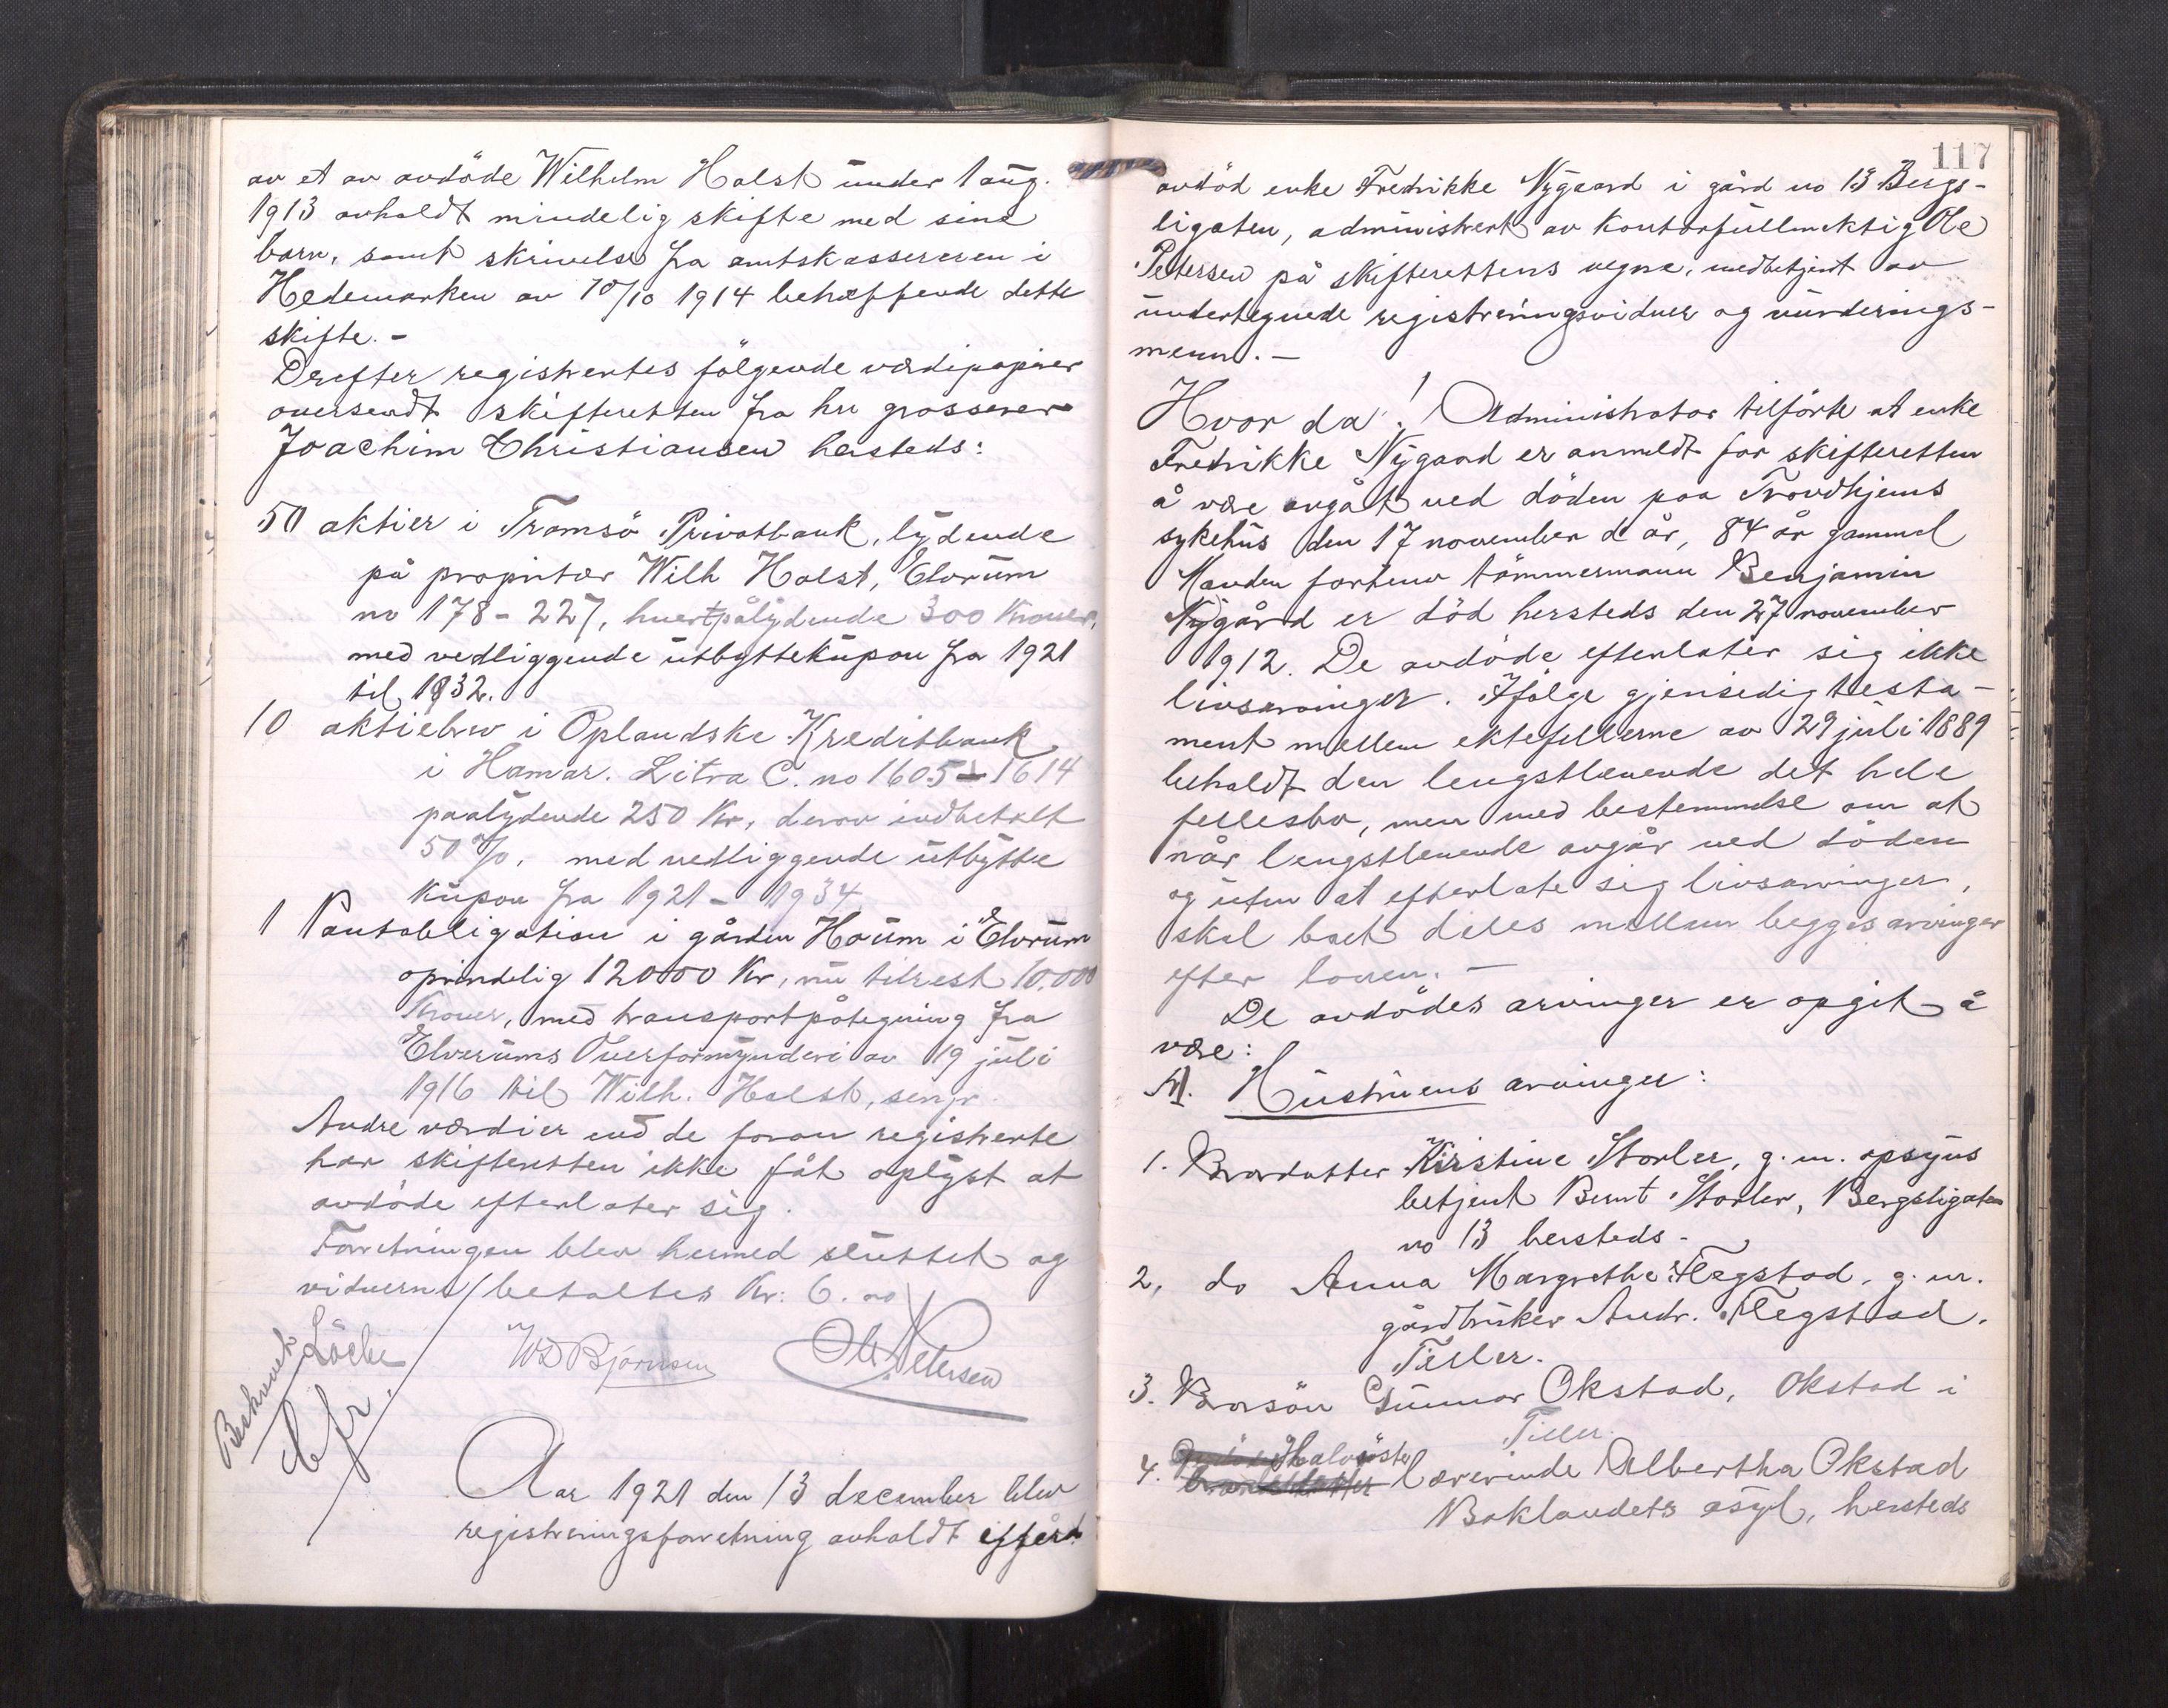 av et av avdöde Wilhelm Holst under 1 aug.
1913 avholdt mindelig skifte med sine
barn, samt skrivelse fra amtskassereren i
Hedemarken av 10/10 1914 betræffende dette
skifte. -
Derefter registrertes følgende værdipapirer
oversendt skifteretten fra hr grosserer
Joachim Christiansen hersteds:
50 aktier i Tromsö Privatbank, lydende
på proprietær Wilh Holst, Elvrum
no 178 - 227, hvert pålydende 300 Kroner,
med vedliggende utbyttekupon fra 1921
til 1932.
10 aktiebrev i Oplandske Kreditbank
i Hamar. Litra C. no 1605 - 1614
paalydende 250 Kr, derav indbetalt
50 %, med vedliggende utbytte
kupon fra 1921 - 1934
1 Pantobligation i gården Houm i Elvrum
oprindelig 12000 Kr, nu tilrest 10.000
Kroner, med transportpåtegning fra
Elverums Overformynderi av 19 juli
1916 til Wilh. Holst, senr.
Andre værdier end de foran registrerte
har skifteretten ikke fåt oplyst at
avdöde efterlater sig.
Forretningen blev hermed sluttet og
vidnerne betaltes Kr: 6.00
Beskrevet
Löche
W D Bjørnsen
Ole Petersen
Aar 1921 den 13 december blev
registreringsforretning avholdt efter
117
avdöd enke Fredrikke Nygaard i gård no 13 Bergs-
ligaten, administrert av kontorfullmektig Ole
Petersen på skifterettens vegne, medbetjent av
undertegnede registreringsvidner og vurderings-
menn. -
Hvor da! Administrator tilförte at enke
Fredrikke Nygaard er anmeldt for skifteretten
å være avgåt ved döden paa Trondhjems
sykehus den 17 november d år, 84 år gammel
Manden forhenv tömmermann Benjamin
Nygård er död hersteds den 27 november
1912. De avdöde efterlater sig ikke
livsarvinger. Ifölge gjensidig testa-
ment mellem ektefellerne av 29 juli 1889
beholdt den lengstlevende det hele
fellesbo, men med bestemmelse om at
når lengstlevende avgår ved döden
og uten at efterlate sig livsarvinger,
skal boet deles mellem begges arvinger
efter loven. -
De avdödes arvinger er opgit å
være:
A. Hustruens arvinger:
1. Brordatter Kirstine Storler, g. m. opsyns
betjent Bernt Storler, Bergsligaten
no 13 hersteds -
2. do Anna Margrethe Flegstad, g. m.
gårdbruker Andr. Flegstad.
Tiller.
3. Brorsön Gunnar Okstad, Okstad i
Tiller.
4. Halvsöster lærerinde Albertha Okstad
Baklandets asyl, hersteds